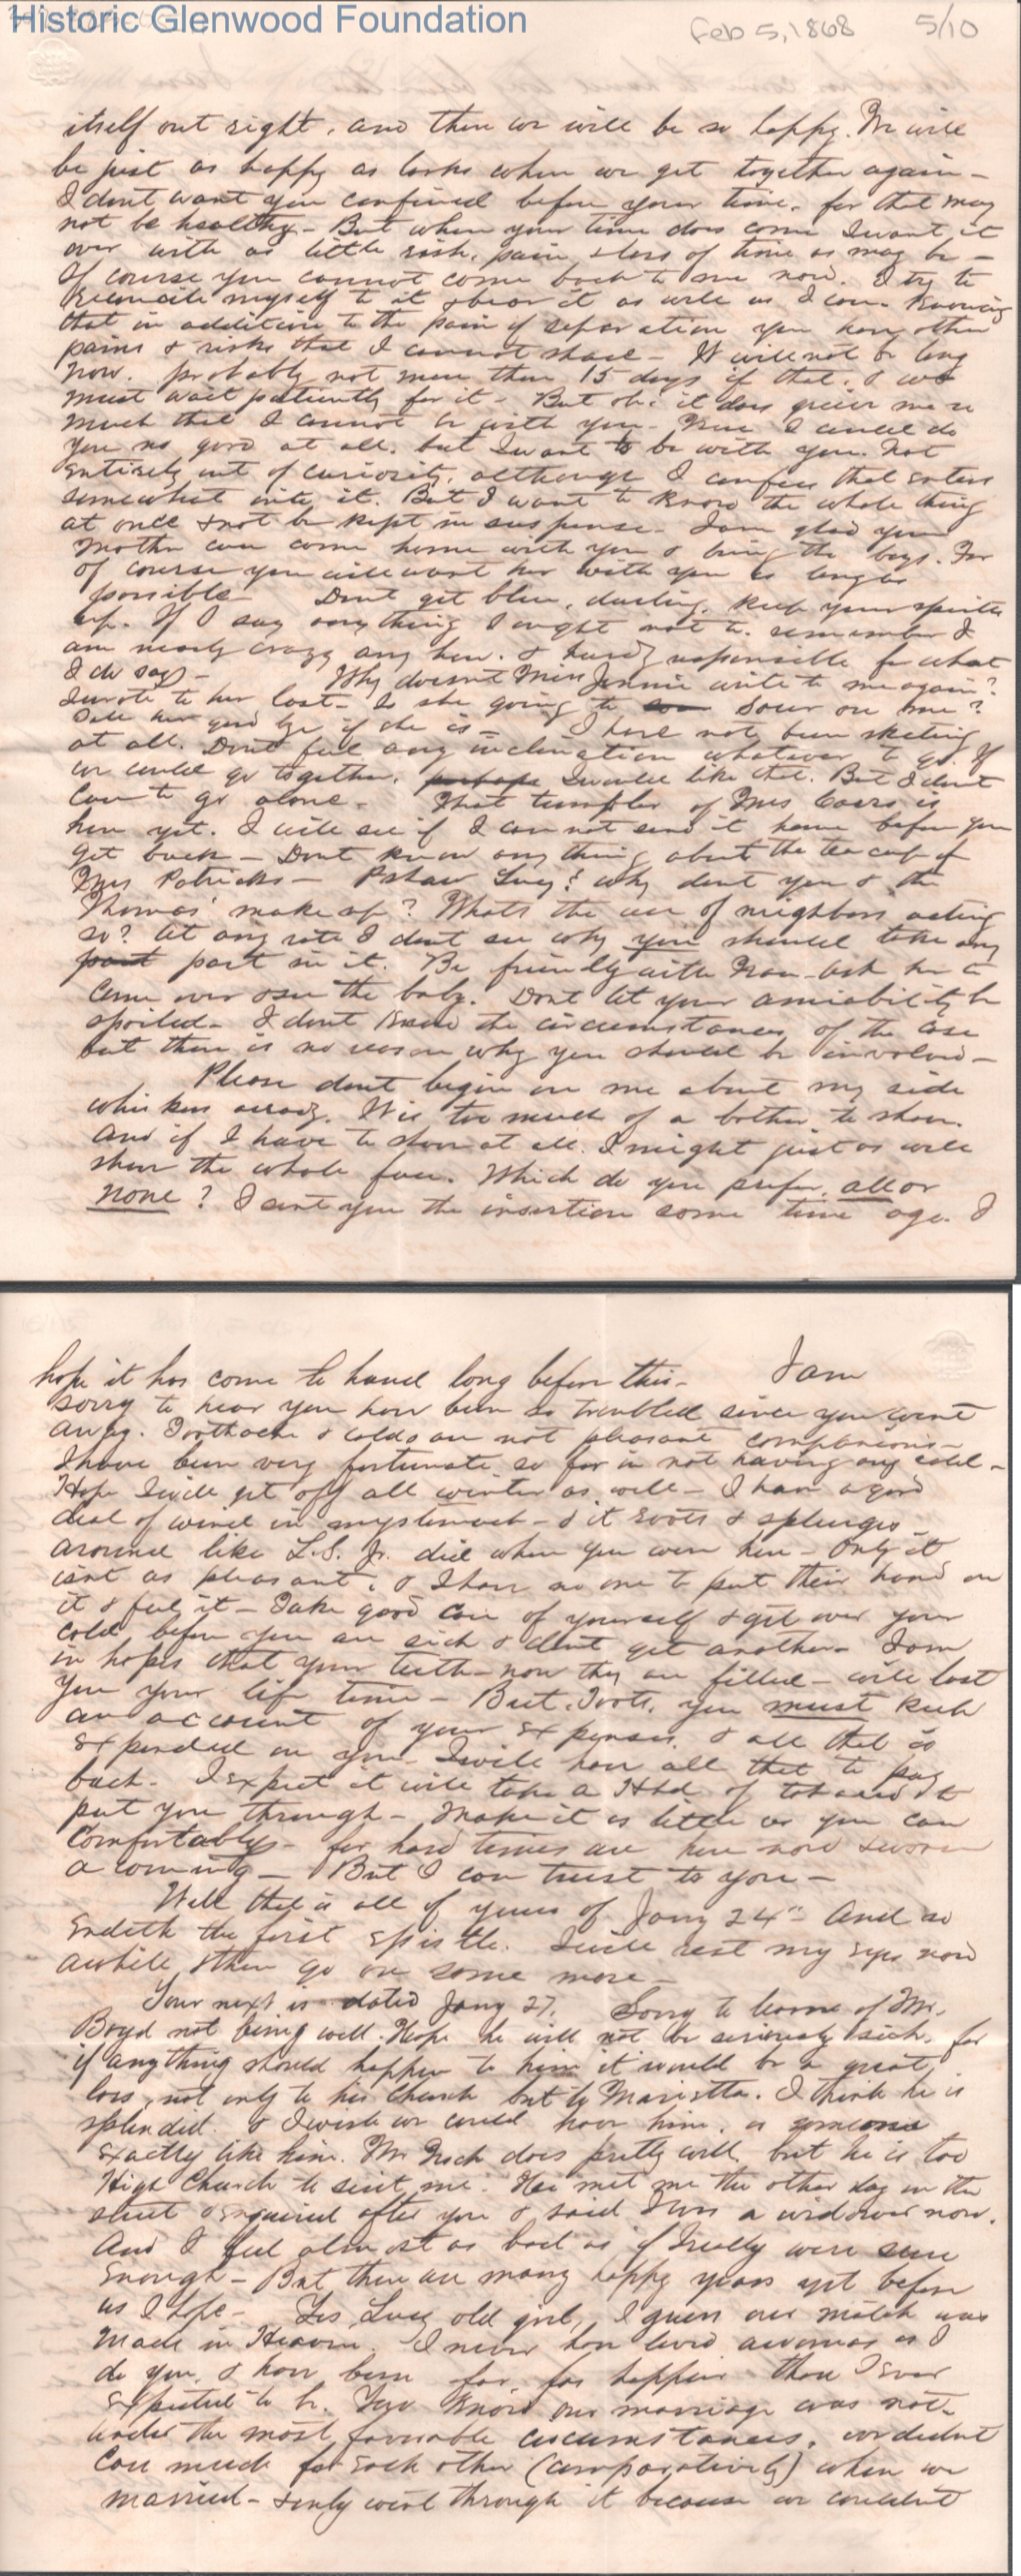 Historic Glenwood Foundation
Feb 5, 1868 5/10
itself out right, and then we will be so happy. We will
be just as happy as larks when we get together again -
I dont want you confined before your time, for that may
not be healthy - But when your time does come I want it
over with as little risk, pain & loss of time as may be -
Of course you cannot come back to me now. I try to
reconcile myself to it & bear it as well as I can knowing
that in addition to the pain of separation you have other
pains & risks that I cannot share - It will not be long
now. probably not more than 15 days if that. & we
must wait patiently for it - But oh! it does grieve me so
much that I cannot be with you - True I could do
you no good at all, but I want to be with you. Not
entirely out of curiosity, although I confess that enters
somewhat into it. But I want to know the whole thing
at once & not be kept in suspense. I am glad your
Mother can come home with you & bring the boys. For
of course you will want her with you as long as
possible - Dont get blue, darling, keep your spirits
up. If I say any thing I ought not to. remember I
am nearly crazy any how. & hardly responsible for what
I do say -   Why doesnt Miss Jennie write to me again?
I wrote to her last. Is she going to sour on me?
Tell her good bye if she is - I have not been skating
at all. Dont feel any inclination whatever to go. If
we could go together, perhaps I would like that. But I dont
care to go alone. - That tumbler of Mrs is
here yet. I will see if I can not send it home before you
get back - Dont know any thing about the tea cup of
Mrs Patricks - Pshaw Lucy! why dont you & the
Thomas' make up? Whats the use of neighbors acting
so? At any rate I dont see why you should take any
part part in it. Be friendly with - ask her to
come over & see the baby. Dont let your amiability be
spoiled - I dont know the circumstances of the case
but there is no reason why you should be involved -
Please dont begin on me about my side
whiskers already. It is too much of a bother to shave.
And if I have to shave at all. I might just as well
shave the whole face. Which do you prefer, all or
none? I sent you the insertion some time ago. I
hope it has come to hand long before this - I am
sorry to hear you have been so troubled since you went
away. Toothache & colds are not pleasant companions -
I have been very fortunate so far in not having any cold -
Hope I will get off all winter as well - I have a good
deal of wind in my stomach - & it roots & splurges
around like L.S. Jr. did when you were here - Only it
isnt as pleasant, & I have no one to put their hand on
it & feel it - Take good care of yourself & get over your
cold before you are sick & dont get another - I am
in hopes that your teeth - now they are filled - will last
you your life time - But, Toots, you must keep
an account of your expenses, & all that is
expended on you - I will have all that to pay
back - I expect it will take a Hhd of tobacco to
put you through - Make it as little as you can
Comfortably - for hard times are here now & worse
a coming - But I can trust to you -
Well that is all of yours of Jany 24th And so
endeth the first epistle. I will rest my eyes now
awhile, & then go on some more -
Your next is dated Jany 27. Sorry to learn of Mr.
Boyd not being well. Hope he will not be seriously sick, for
if anything should happen to him it would be a great
loss, not only to his Church but to Marietta. I think he is
splendid. & I wish we could have him, or someone
exactly like him. Mr does pretty well but he is too
High Church to suit me. He met me the other day on the
street & enquired after you & said I was a widower now.
And I feel almost as bad as if I really were sure
enough - But there are many happy years yet before
us I hope - Yes Lucy old girl, I guess our match was
made in Heaven. I never have loved as I
do you, & have been far, far happier than I ever
expected to be. You know our marriage was not
under the most favorable circumstances, we didnt
care much for each other (comparatively) when we
married - & only went through it because we couldnt